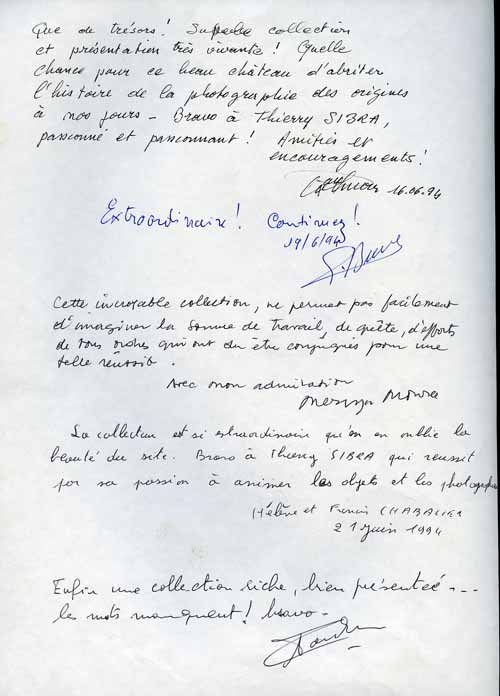 Que de trésors! Superbe collection
et présentation très vivante! Quelle
chance pour ce beau château d'abriter
l'histoire de la photographie des origines
à nos jours - Bravo à Thierry SIBRA,
passionné et passionnant! Amitiés et
encouragements!
16.06.94
Extraordinaire! Continuez!
19/6/94
Cette incroyable collection, ne permet pas facilement
d'imaginer la somme de travail, de quête, d'efforts
de tous ordres qui ont du être conjugués pour une
telle réussite.
Avec mon admiration
La collection est si extraordinaire qu'on en oublie la
beauté du site. Bravo à Thierry SIBRA qui réussit
par sa passion à animer les objets et les photographies
Hélène et Francis CHABALIER
21 Juin 1994
Enfin une collection riche, bien présentée ---
les mots manquent! bravo -